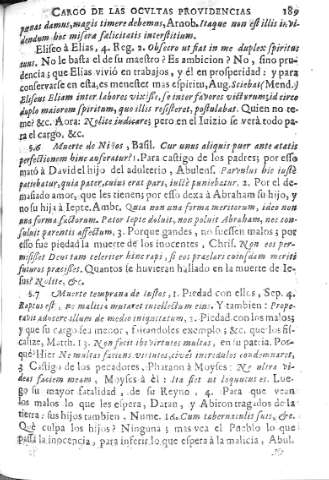 CARGO DE LAS OCULTAS PROVIDENCIAS 189
pœnas damus, magis timere debemus, Arnob. Itaque non est illis invi-
dendum hoc misera fœlicitatis interstitium.
Eliseo à Elias, 4. Reg. 2. Obsecro ut fiat in me duplex spiritus
tuus. No le basta el de su maestro? Es ambicion? No, sino pru-
dencia; que Elias vivió en trabajos, y él en prosperidad: y para
conservarse en esta, es menester mas espiritu, Aug.
Eliseus Eliam inter labores vixisse, se inter favores victurum: id circo
duplo maiorem spiritum, quo illis resisteret, postulabat. Quien no te-
me? &c. Aora: Nolite iudicare; pero en el Iuizio se verà todo pa-
ra el cargo, &c.
5.6 Muerte de Niños, Basil. Cur unus aliquis puer ante ætatis
perfectionem hinc auferatur? 1. Para castigo de los padres; por esso
matò à David el hijo del adulterio, Abulens. Parvulus hic iustè
patiebatur, quia pater, cuius erat pars, iustè puniebatur. 2. Por el de-
masiado amor, que les tienen; por esso dexa à Abraham su hijo, y
no su hija à Iepte. Ambr. Quia non una forma meritorum, ideo non
una forma facturum. Pater Iepte doluit, non doluit Abraham, nec con-
suluit parentis affectum, 3. Porque gandes, no fuessen malos; por
esso fue piedad la muerte de los inocentes, Chris. Non eos per-
misisset Deus tam celeriter hinc rapi, si eos præclaros cuiusdam meriti
futuros præscisset. Quantos se huvieran hallado en la muerte de Ie-
sus? Nolite, &c.
5.7 Muerte temprana de iustos, 1. Piedad con ellos, Sap. 4.
Raptus est, ne malitia mutaret intellectum eius. Y tambien: Prope-
ravit educere illum de medio iniquitatum, 2. Piedad con los malos;
y que su cargo sea menor, faltandoles exemplos; &c. que los fis-
calize, Matth. 13. Non fecit ibi virtutes multas, en su patria. Por-
què? Hier. Ne multas faciens virtutes, cives incredulos condemnaret,
3 Castigo de los pecadores, Pharaon à Moyses: Ne ultra vi-
deas faciem meam, Moyses à èl: Ita fiet ut loquutus es. Lue-
go su mayor fatalidad, de su Reyno, 4. Para que vean
los malos lo que les espera, Datan, y Abiron tragados de la
tierra: sus hijos tambien, Nume. 16. Cum tabernaculis suis, &c.
Què culpa los hijos? Ninguna; mas vea el Pueblo lo que
passa la inocencia, para inferir lo que espera à la malicia, Abul.